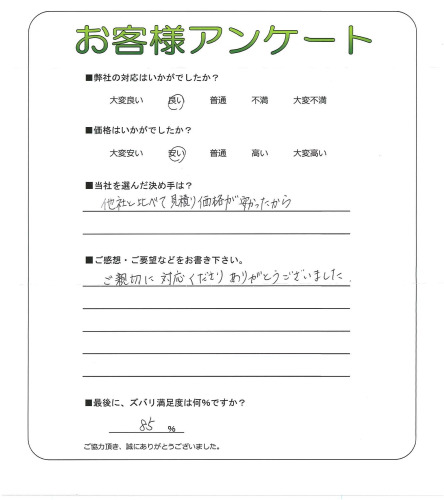 お客様アンケート
■弊社の対応はいかがでしたか?
大変良い 良い 普通 不満 大変不満
■価格はいかがでしたか?
大変安い 安い 普通 高い 大変高い
■当社を選んだ決め手は?
他社と比べて見積り価格が安かったから
■ご感想・ご要望などをお書き下さい。
ご親切に対応くださりありがとうございました.
■最後に、ズバリ満足度は何%ですか?
85 %
ご協力頂き、誠にありがとうございました。